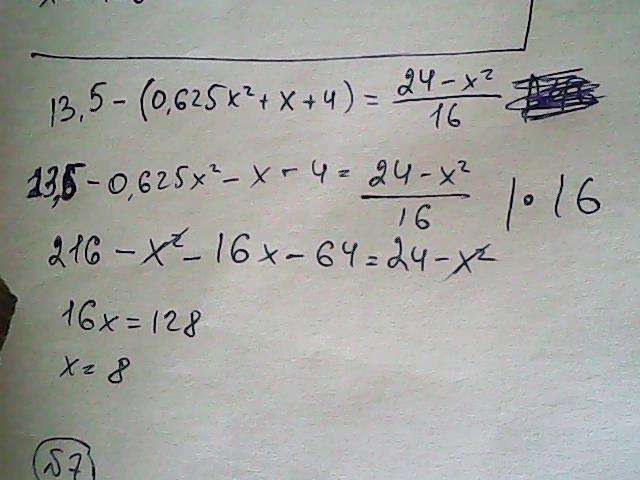 13,5 - (0,625x² + x + 4) = (24 - x²)/16
13,5 - 0,625x² - x - 4 = (24 - x²)/16 | · 16
216 - x² - 16x - 64 = 24 - x²
16x = 128
x = 8
№7